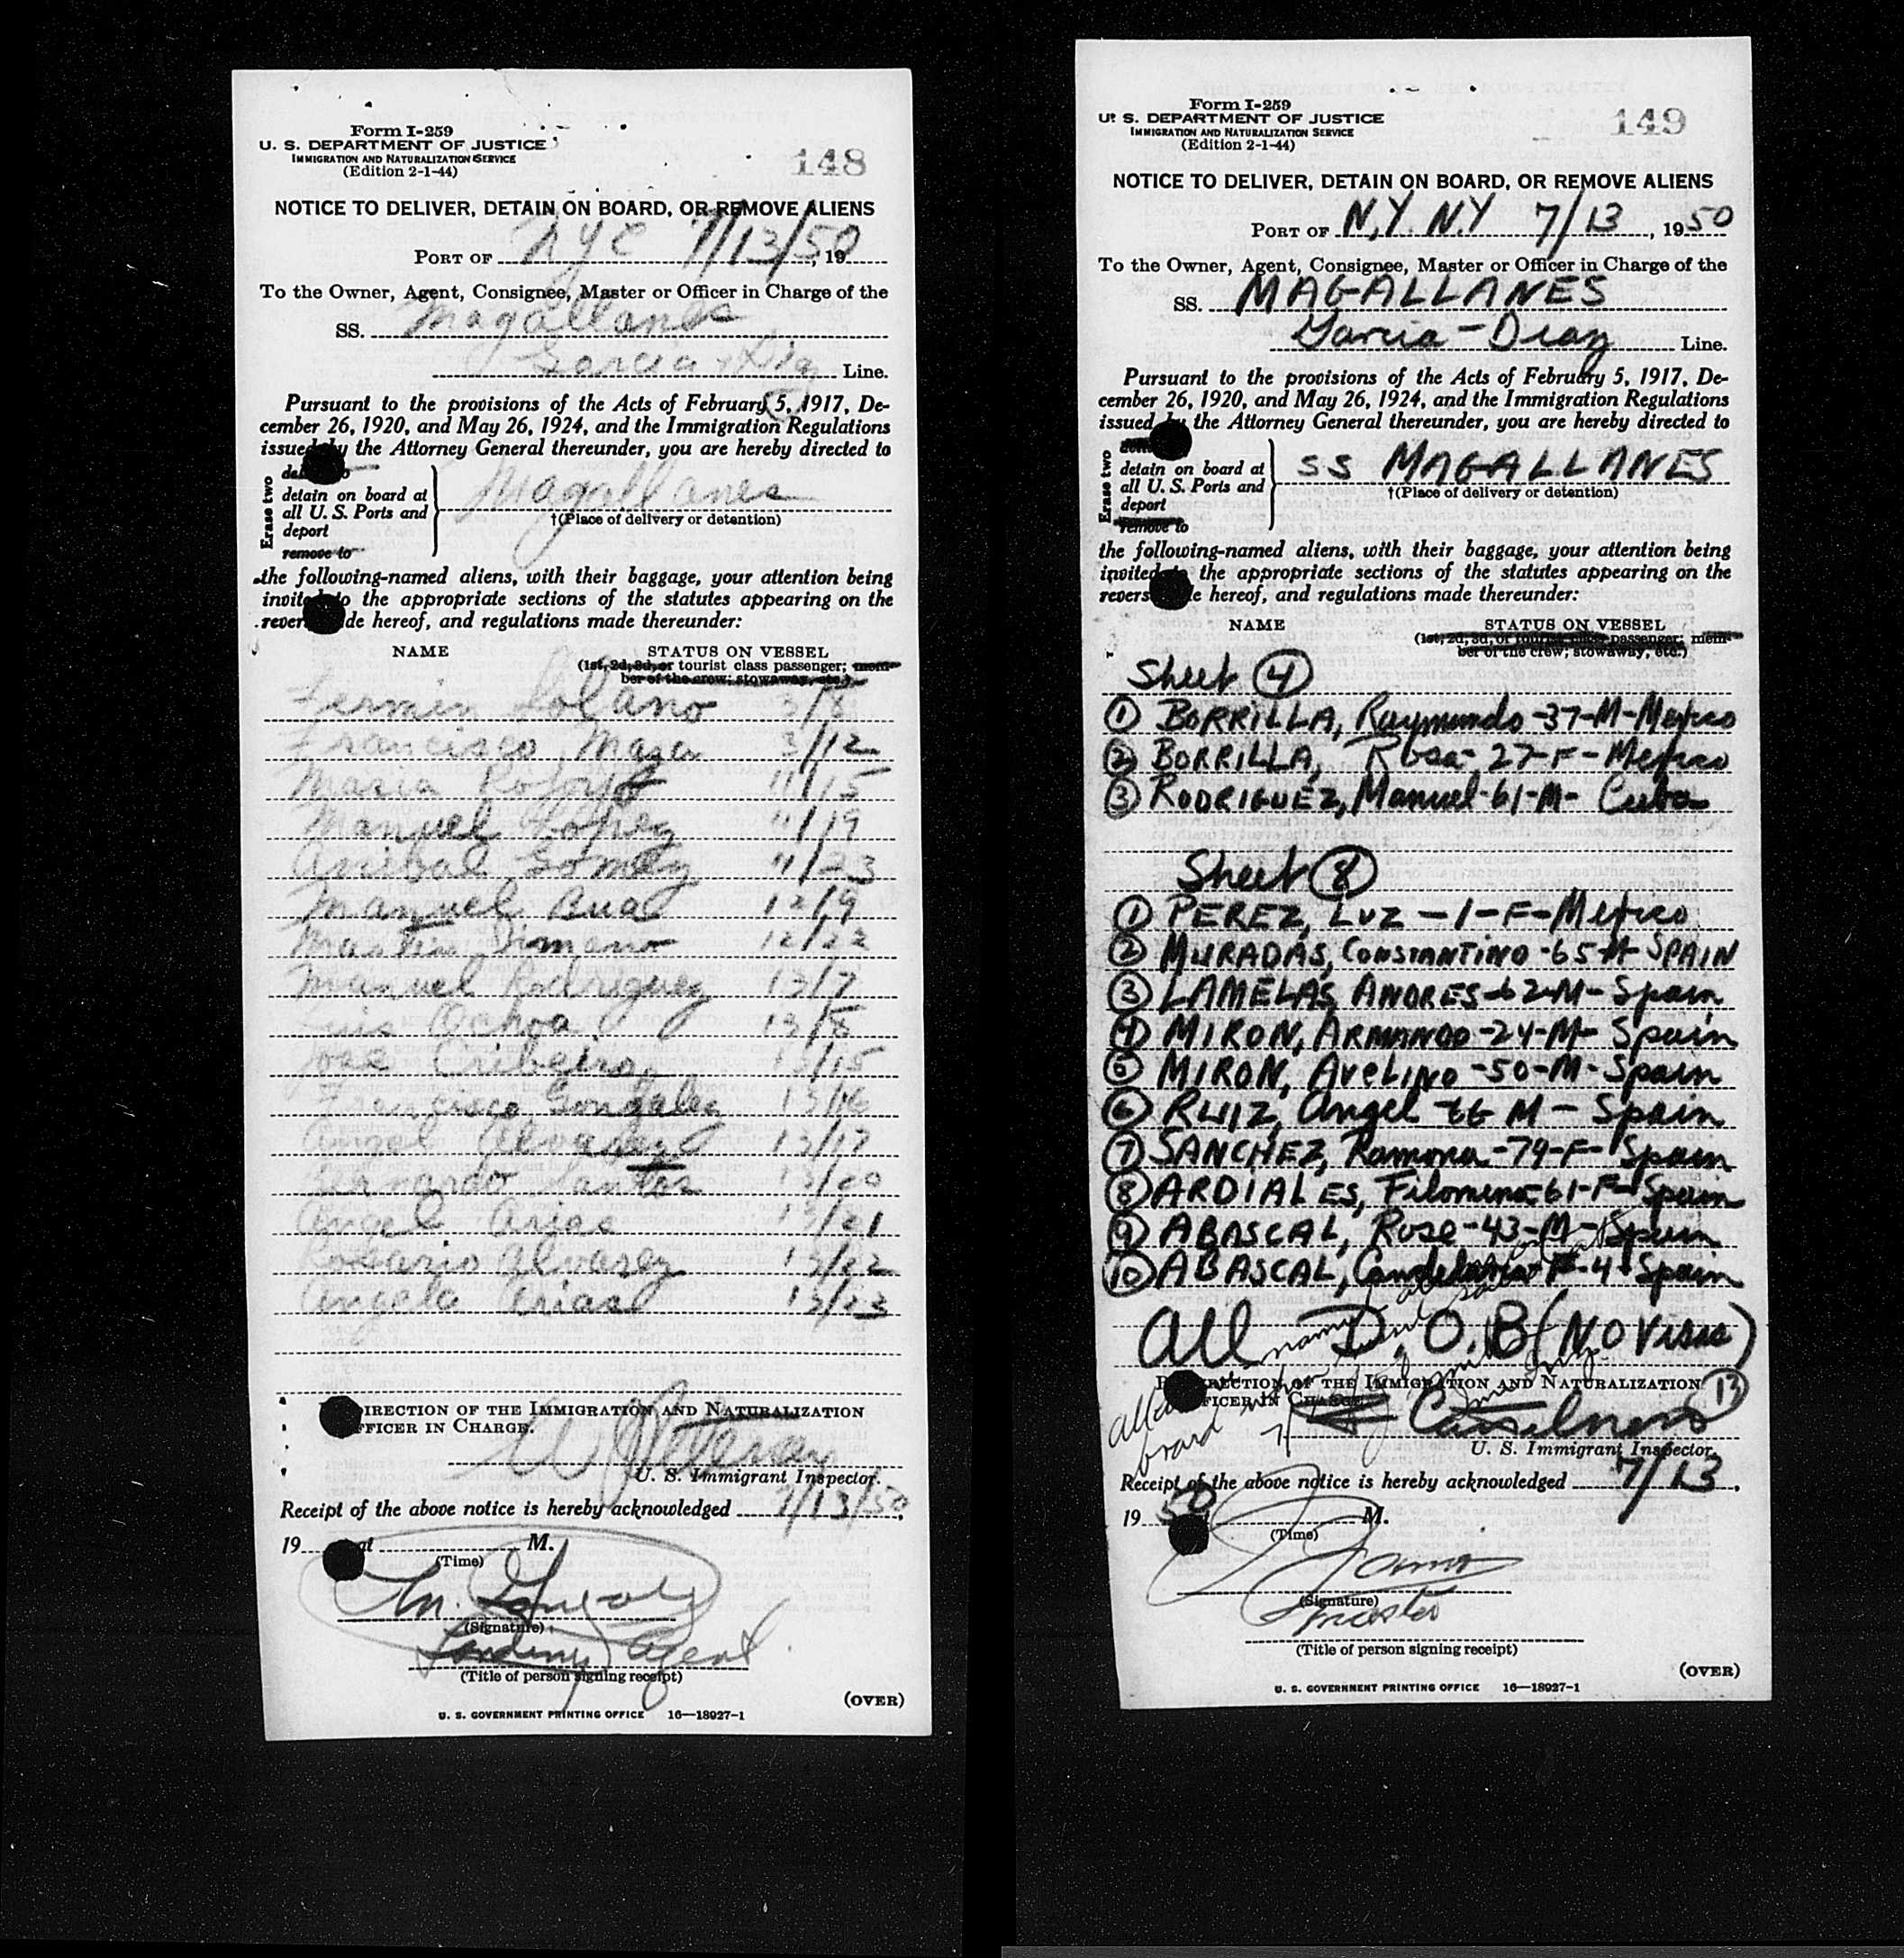 Form I-259
U. S. DEPARTMENT OF JUSTICE
IMMIGRATION AND NATURALIZATION SERVICE
(Edition 2-1-44)
148
NOTICE TO DELIVER, DETAIN ON BOARD, OR REMOVE ALIENS
PORT OF NYC 7/13/50, 19
To the Owner, Agent, Consignee, Master or Officer in Charge of the
SS. Magallanes
Garcia + Diaz Line.
Pursuant to the provisions of the Acts of February 5, 1917, De-
cember 26, 1920, and May 26, 1924, and the Immigration Regulations
issued by the Attorney General thereunder, you are hereby directed to
Erase two
detain on board at
all U. S. Ports and
deport
remove to
Magallanes
†(Place of delivery or detention)
the following-named aliens, with their baggage, your attention being
invited to the appropriate sections of the statutes appearing on the
reverse side hereof, and regulations made thereunder:
NAME STATUS ON VESSEL
(1st, 2d, 3d, or tourist class passenger; mem-
ber of the crew; stowaway, etc.)
Fermin Solano 3/8
Francisco Maza 3/12
Maria 11/15
Manuel Lopez 11/19
Anibal Gomez 11/23
Manuel Bua 12/9
Martin Jimeno 12/22
Manuel Rodriguez 13/7
Luis Ochoa 13/8
Jose Cribeiro 13/15
Francisco Gonzalez 13/16
Angel Alvarez 13/17
Bernardo Santos 13/20
Angel Arias 13/21
Rosario Alvarez 13/22
Angela Arias 13/23
DIRECTION OF THE IMMIGRATION AND NATURALIZATION
OFFICER IN CHARGE.
U. S. Immigrant Inspector.
Receipt of the above notice is hereby acknowledged 7/13/50,
19 at M.
(Time)
(Signature)
Landing Agent
(Title of person signing receipt)
(OVER)
U. S. GOVERNMENT PRINTING OFFICE 16—18927-1
Form I-259
U. S. DEPARTMENT OF JUSTICE
IMMIGRATION AND NATURALIZATION SERVICE
(Edition 2-1-44)
149
NOTICE TO DELIVER, DETAIN ON BOARD, OR REMOVE ALIENS
PORT OF N.Y. N.Y 7/13, 1950
To the Owner, Agent, Consignee, Master or Officer in Charge of the
SS. MAGALLANES
Garcia-Diaz Line.
Pursuant to the provisions of the Acts of February 5, 1917, De-
cember 26, 1920, and May 26, 1924, and the Immigration Regulations
issued by the Attorney General thereunder, you are hereby directed to
Erase two
detain on board at
all U. S. Ports and
deport
remove to
SS MAGALLANES
†(Place of delivery or detention)
the following-named aliens, with their baggage, your attention being
invited to the appropriate sections of the statutes appearing on the
reverse side hereof, and regulations made thereunder:
NAME STATUS ON VESSEL
(1st, 2d, 3d, or tourist class passenger; mem-
ber of the crew; stowaway, etc.)
Sheet 4
1 BORRILLA, Raymundo-37-M-Mexico
2 BORRILLA, Rosa-27-F-Mexico
3 RODRIGUEZ, Manuel-61-M-Cuba
Sheet 8
1 PEREZ, LUZ-1-F-Mexico
2 MURADAS, CONSTANTINO-65-M-SPAIN
3 LAMELAS, ANDRES-62-M-Spain
4 MIRON, ARMANDO-24-M-Spain
5 MIRON, AVELINO-50-M-Spain
6 RUIZ, Angel-66 M-Spain
7 SANCHEZ, Ramona-79-F-Spain
8 ARDIALES, Filomena-61-F-Spain
9 ABASCAL, Rose-43-M-Spain
10 ABASCAL, Candelaria-F-4-Spain
All D.O.B (NO Visas)
DIRECTION OF THE IMMIGRATION AND NATURALIZATION 13
OFFICER IN CHARGE
U. S. Immigrant Inspector.
Receipt of the above notice is hereby acknowledged 7/13,
1950 M.
(Time)
(Signature)
master
(Title of person signing receipt)
(OVER)
U. S. GOVERNMENT PRINTING OFFICE 16—18927-1